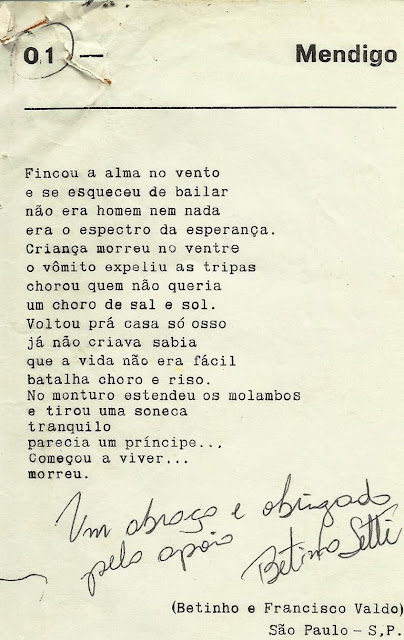 01 — Mendigo
Fincou a alma no vento
e se esqueceu de bailar
não era homem nem nada
era o espectro da esperança.
Criança morreu no ventre
o vômito expeliu as tripas
chorou quem não queria
um choro de sal e sol.
Voltou prá casa só osso
já não criava sabia
que a vida não era fácil
batalha choro e riso.
No monturo estendeu os molambos
e tirou uma soneca
tranquilo
parecia um príncipe...
Começou a viver...
morreu.
Um abraço e obrigado
pelo apoio
Betinho Setti
(Betinho e Francisco Valdo)
São Paulo - S.P.